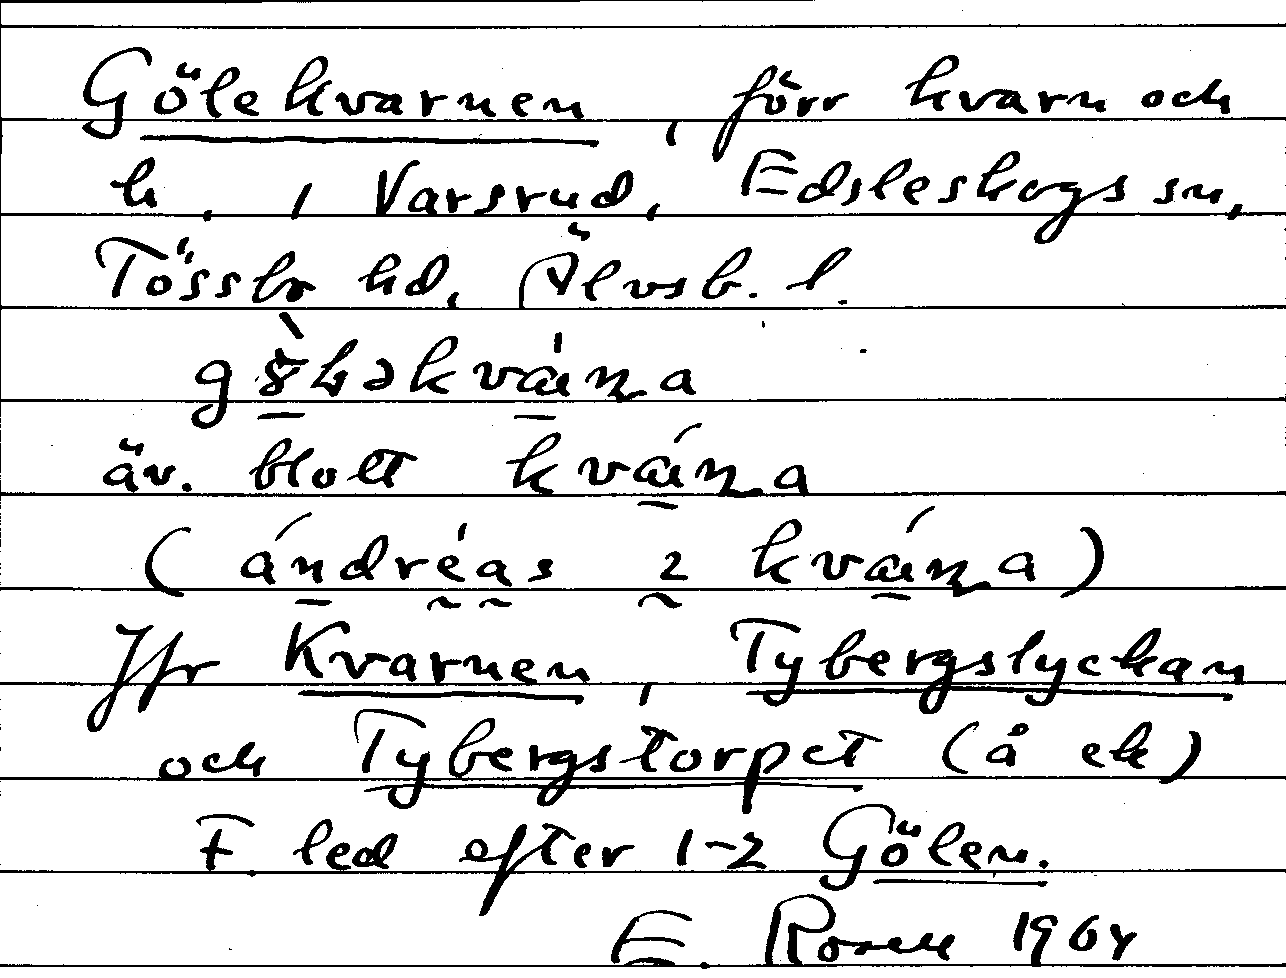 Gölekvarnen, förr kvarn och
h. i Varsrud, Edsleskogs sn,
Tössbo hd, Älvsb. l.
äv. blott
Jfr Kvarnen, Tybergslyckan
och Tybergstorpet (å ek)
F. led efter 1-2 Gölen.
E. Rosen 1964